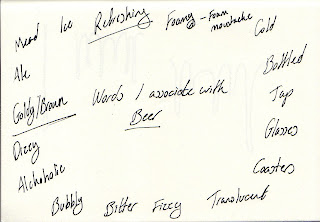 Mead
Ice
Refreshing
Foamy - Foam
moustache
Cold
Ale
Bottled
Goldy/Brown
Words I associate with
Beer
Tap
Dizzy
Glasses
Alchoholic
Coasters
Bubbly
Bitter
Fizzy
Translucent